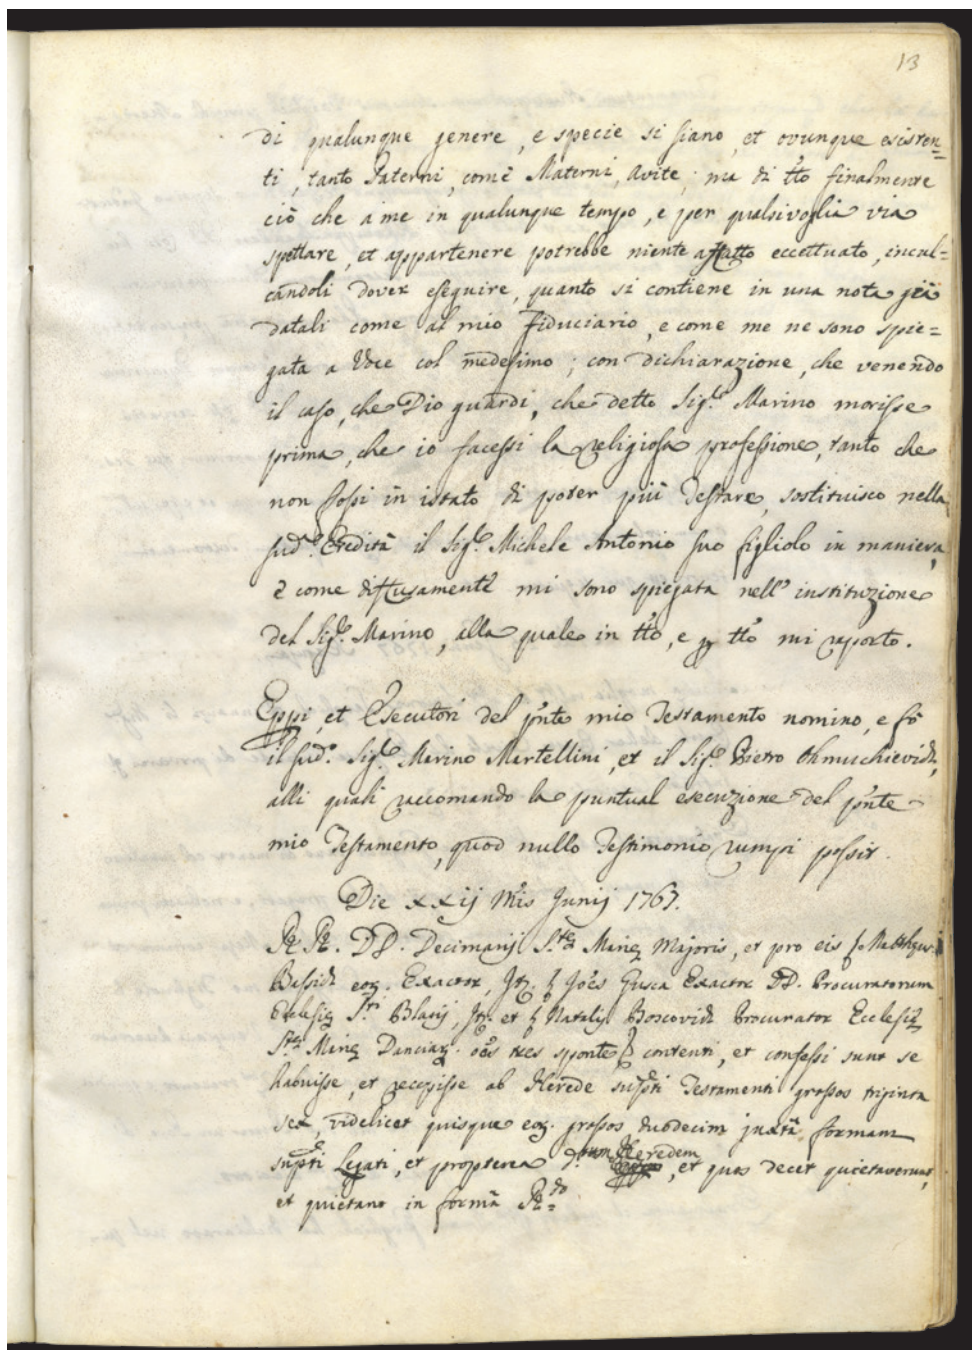 13
di qualunque genere, e specie si siano, et ovunque esisten=
ti, tanto Paterni, come Materni, Avite; ma di tto finalmente
ciò che à me in qualunque tempo, e per qualsivoglia via
spettare, et appartenere potrebbe niente affatto eccettuato, incul=
candoli dover eseguire, quanto si contiene in una nota già
datali come al mio fiduciario, e come me ne sono spie=
gata a Voce col medesimo; con dichiarazione, che venendo
il caso, che Dio guardi, che detto Sigr. Marino morisse
prima, che io facessi la religiosa professione, tanto che
non fossi in istato di poter più testare, sostituisco nella
sudª. Eredità il Sigr. Michele Antonio suo figliolo in maniera,
è come diffusamente mi sono spiegata nell' instituzione
del Sigr. Marino, alla quale in tto, e p tto mi riporto.
Eppi, et Esecutori del pnte mio Testamento nomino, e fò
il sudº. Sigr. Marino Martellini, et il Sigr. Pietro Ohmuchievich,
alli quali raccomando la puntual esecuzione del pnte
mio Testamento, quod nullo Testimonio rumpi possit.
Die xxij Mis Junij 1767.
RR. DD. Decimarij Stæ Mariæ Majoris, et pro eis Matthæus
Bassich eoz. Exactor, Itz. Joes Gusca Exactor DD. Procuratorum
Eclesiæ Sti Blasij, Itz. et Natalis Boscovich Procurator Ecclesiæ
Stæ Mariæ Danciaz. oes tres sponte contenti, et confessi sunt se
habuisse, et recepisse ab Herede supti Testamenti grossos triginta
sex, videlicet quisque eoz. grossos duodecim juxta formam
supti Legati, et propterea dtum Heredem, et quos decet quietaverunt,
et quietant in formā